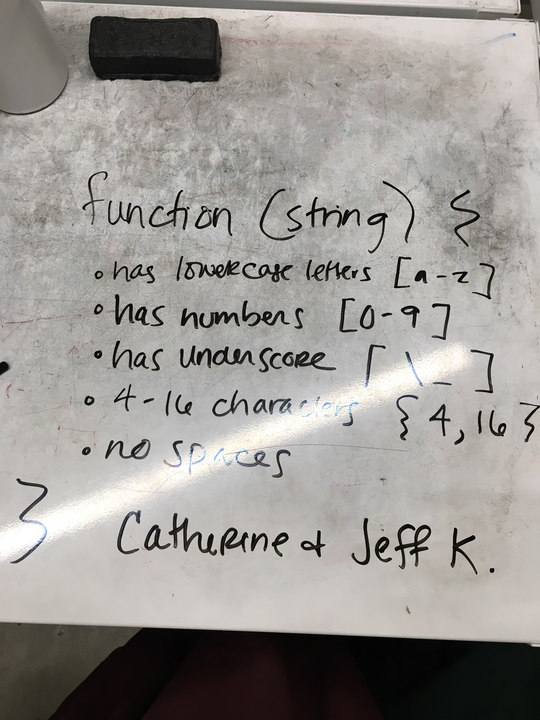 function (string) {
• has lowercase letters [a-z]
• has numbers [0-9]
• has underscore [\_]
• 4-16 characters {4,16}
• no spaces
}
Catherine & Jeff K.